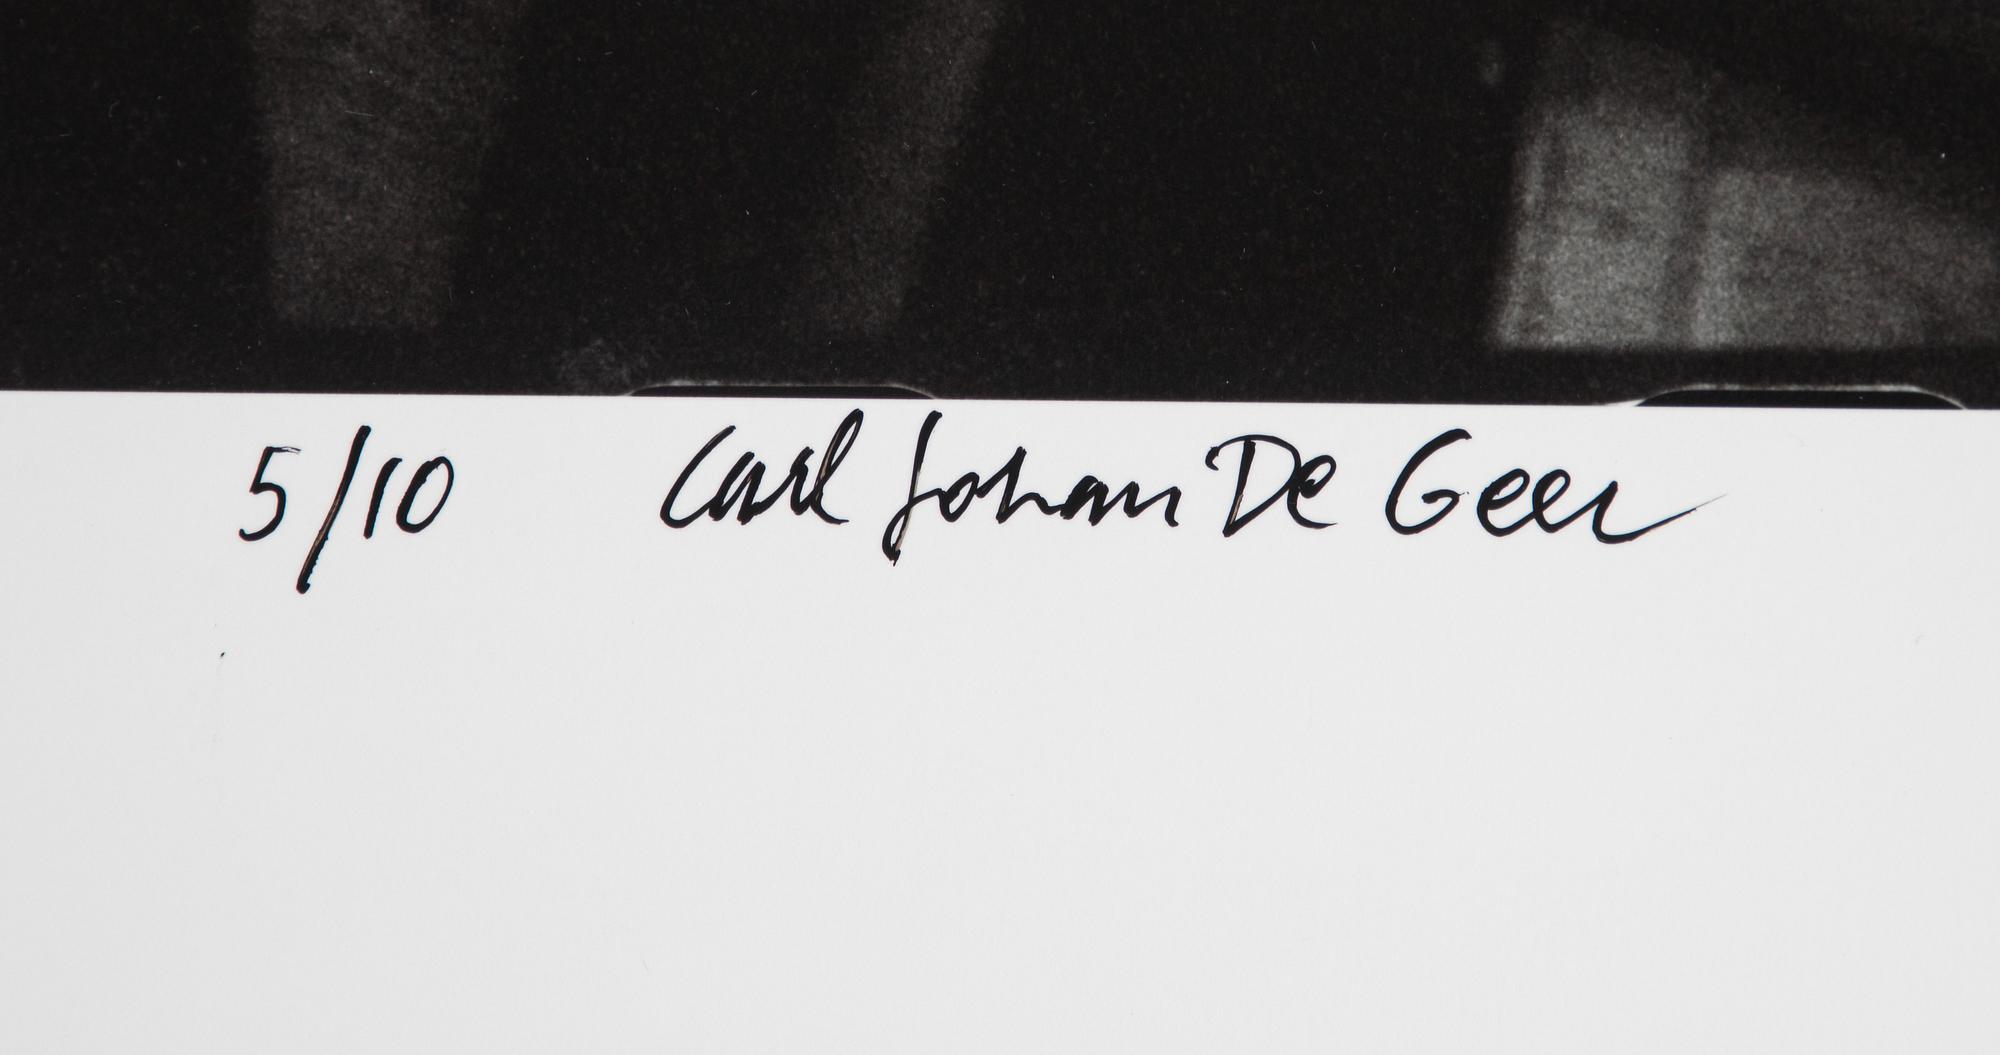 5/10 Carl Johan De Geer